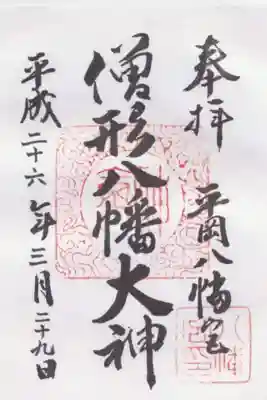 奉拝
平岡八幡宮
僧形八幡大神
平成二十六年三月二十九日